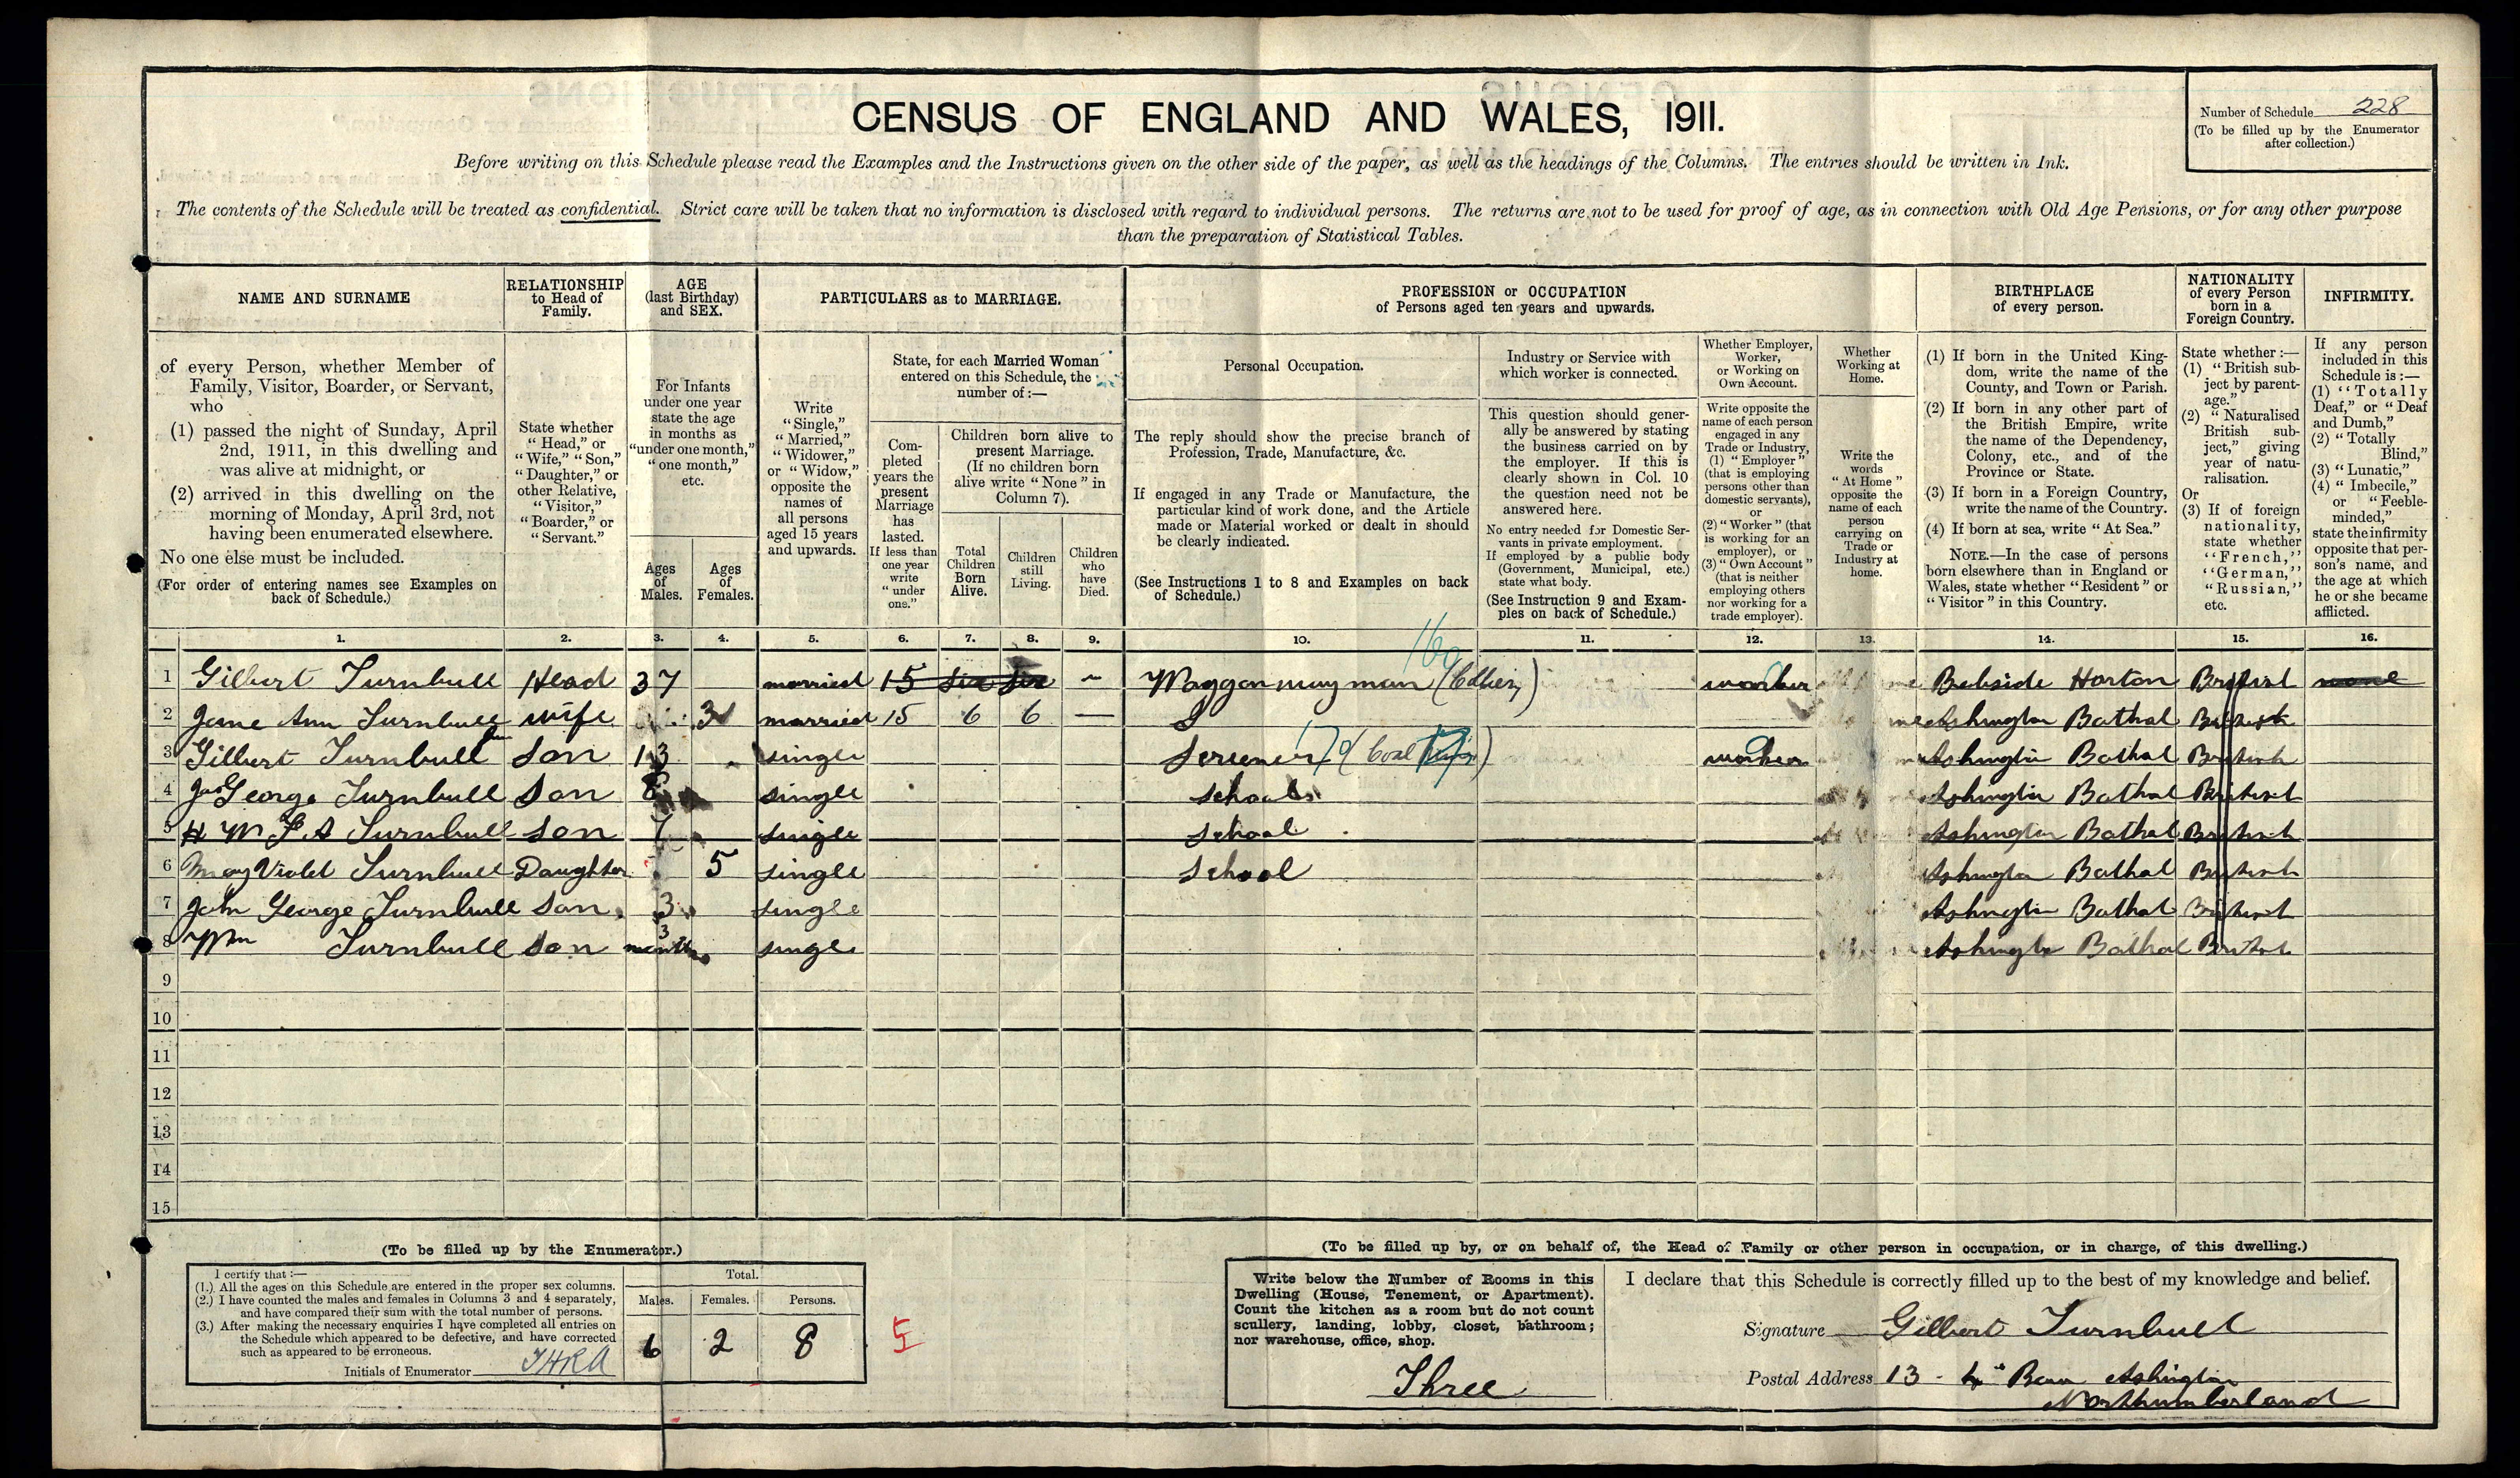 CENSUS OF ENGLAND AND WALES, 1911.
Number of Schedule 228
(To be filled up by the Enumerator
after collection.)
Before writing on this Schedule please read the Examples and the Instructions given on the other side of the paper, as well as the headings of the Columns. The entries should be written in Ink.
The contents of the Schedule will be treated as confidential. Strict care will be taken that no information is disclosed with regard to individual persons. The returns are not to be used for proof of age, as in connection with Old Age Pensions, or for any other purpose
than the preparation of Statistical Tables.
NAME AND SURNAME
of every Person, whether Member of
Family, Visitor, Boarder, or Servant,
who
(1) passed the night of Sunday, April
2nd, 1911, in this dwelling and
was alive at midnight, or
(2) arrived in this dwelling on the
morning of Monday, April 3rd, not
having been enumerated elsewhere.
No one else must be included.
(For order of entering names see Examples on
back of Schedule.)
RELATIONSHIP
to Head of
Family.
State whether
"Head," or
"Wife," "Son,"
"Daughter," or
other Relative,
"Visitor,"
"Boarder," or
"Servant."
AGE
(last Birthday)
and SEX.
For Infants
under one year
state the age
in months as
"under one month,"
"one month,"
etc.
Ages
of
Males.
Ages
of
Females.
PARTICULARS as to MARRIAGE.
Write
"Single,"
"Married,"
"Widower,"
or "Widow,"
opposite the
names of
all persons
aged 15 years
and upwards.
State, for each Married Woman
entered on this Schedule, the
number of:—
Com-
pleted
years the
present
Marriage
has
lasted.
If less than
one year
write
"under
one."
Children born alive to
present Marriage.
(If no children born
alive write "None" in
Column 7).
Total
Children
Born
Alive.
Children
still
Living.
Children
who
have
Died.
PROFESSION or OCCUPATION
of Persons aged ten years and upwards.
Personal Occupation.
The reply should show the precise branch of
Profession, Trade, Manufacture, &c.
If engaged in any Trade or Manufacture, the
particular kind of work done, and the Article
made or Material worked or dealt in should
be clearly indicated.
(See Instructions 1 to 8 and Examples on back
of Schedule.)
Industry or Service with
which worker is connected.
This question should gener-
ally be answered by stating
the business carried on by
the employer. If this is
clearly shown in Col. 10
the question need not be
answered here.
No entry needed for Domestic Ser-
vants in private employment.
If employed by a public body
(Government, Municipal, etc.)
state what body.
(See Instruction 9 and Exam-
ples on back of Schedule.)
Whether Employer,
Worker,
or Working on
Own Account.
Write opposite the
name of each person
engaged in any
Trade or Industry,
(1) "Employer"
(that is employing
persons other than
domestic servants),
or
(2) "Worker" (that
is working for an
employer), or
(3) "Own Account"
(that is neither
employing others
nor working for a
trade employer).
Whether
Working at
Home.
Write the
words
"At Home"
opposite the
name of each
person
carrying on
Trade or
Industry at
home.
BIRTHPLACE
of every person.
(1) If born in the United King-
dom, write the name of the
County, and Town or Parish.
(2) If born in any other part of
the British Empire, write
the name of the Dependency,
Colony, etc., and of the
Province or State.
(3) If born in a Foreign Country,
write the name of the Country.
(4) If born at sea, write "At Sea."
NOTE.—In the case of persons
born elsewhere than in England or
Wales, state whether "Resident" or
"Visitor" in this Country.
NATIONALITY
of every Person
born in a
Foreign Country.
State whether:—
(1) "British sub-
ject by parent-
age."
(2) "Naturalised
British sub-
ject," giving
year of natu-
ralisation.
Or
(3) If of foreign
nationality,
state whether
"French,"
"German,"
"Russian,"
etc.
INFIRMITY.
If any person
included in this
Schedule is:—
(1) "Totally
Deaf," or "Deaf
and Dumb,"
(2) "Totally
Blind,"
(3) "Lunatic,"
(4) "Imbecile,"
or "Feeble-
minded,"
state the infirmity
opposite that per-
son's name, and
the age at which
he or she became
afflicted.
1. 2. 3. 4. 5. 6. 7. 8. 9. 10. 11. 12. 13. 14. 15. 16.
1 Gilbert Turnbull Head 37 married 15 six six – Waggonwayman (Colliery) worker Bebside Horton British none
2 Jane Ann Turnbull wife married 15 6 6 — Ashington Bothal British
3 Gilbert Turnbull Jun son 13 single Screener 170 (Coal) worker Ashington Bothal British
4 Jas George Turnbull son 8 single school Ashington Bothal British
5 H M A Turnbull son 7 single school Ashington Bothal British
6 May Violet Turnbull Daughter 5 single school Ashington Bothal British
7 John George Turnbull son 3 single Ashington Bothal British
8 Wm Turnbull son 3 months single Ashington Bothal British
9
10
11
12
13
14
15
(To be filled up by the Enumerator.)
I certify that:—
(1.) All the ages on this Schedule are entered in the proper sex columns.
(2.) I have counted the males and females in Columns 3 and 4 separately,
and have compared their sum with the total number of persons.
(3.) After making the necessary enquiries I have completed all entries on
the Schedule which appeared to be defective, and have corrected
such as appeared to be erroneous.
Initials of Enumerator JHRA
Total.
Males. Females. Persons.
6 2 8
5
(To be filled up by, or on behalf of, the Head of Family or other person in occupation, or in charge, of this dwelling.)
Write below the Number of Rooms in this
Dwelling (House, Tenement, or Apartment).
Count the kitchen as a room but do not count
scullery, landing, lobby, closet, bathroom;
nor warehouse, office, shop.
Three
I declare that this Schedule is correctly filled up to the best of my knowledge and belief.
Signature Gilbert Turnbull
Postal Address 13 - 4th Row Ashington
Northumberland